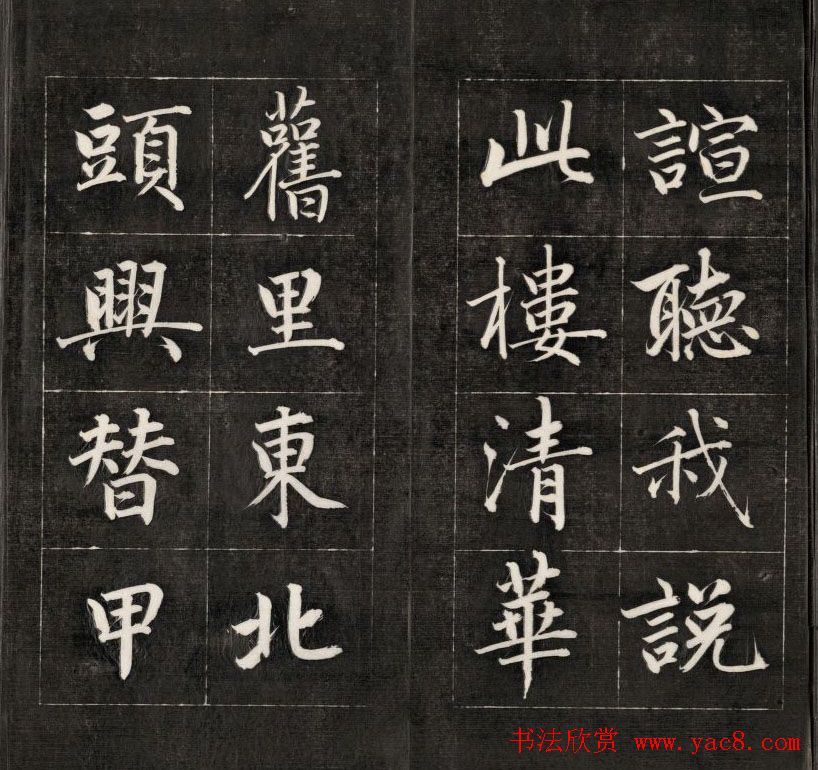 諠聽我説
此樓清華
舊里東北
頭興替甲
书法欣赏 www.yac8.com